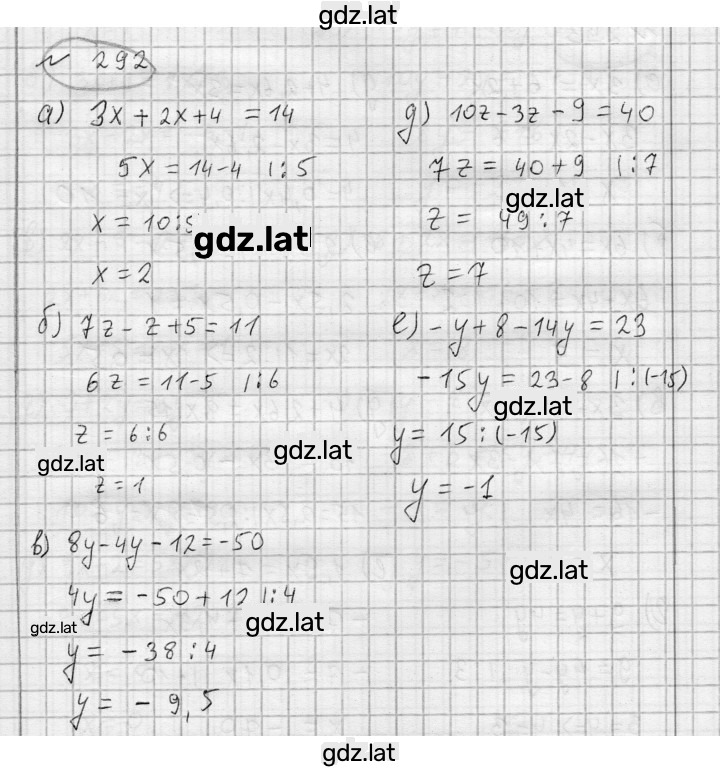 gdz.lat
№ 292
а) 3x + 2x + 4 = 14
5x = 14 - 4 | : 5
x = 10 : 5
gdz.lat
x = 2
б) 7z - z + 5 = 11
6z = 11 - 5 | : 6
z = 6 : 6
gdz.lat
gdz.lat
z = 1
в) 8y - 4y - 12 = -50
4y = -50 + 12 | : 4
gdz.lat
gdz.lat
y = -38 : 4
y = -9,5
д) 10z - 3z - 9 = 40
7z = 40 + 9 | : 7
gdz.lat
z = 49 : 7
z = 7
е) -y + 8 - 14y = 23
-15y = 23 - 8 | : (-15)
gdz.lat
y = 15 : (-15)
y = -1
gdz.lat
gdz.lat